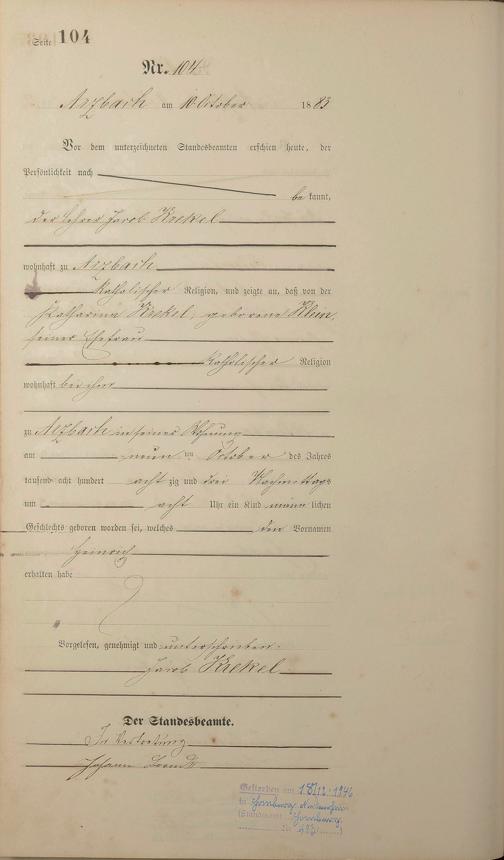 Seite 104
Nr. 104
Arzbach am 10 October 1883
Vor dem unterzeichneten Standesbeamten erschien heute, der
Persönlichkeit nach
be kannt,
der Lehrer Jacob Krekel
wohnhaft zu Arzbach
Katholischer Religion, und zeigte an, daß von der
Katharina Krekel, geborene
seiner Ehefrau
Katholischer Religion
wohnhaft bei ihm
zu Arzbach in seiner Wohnung
am neun ten October des Jahres
tausend acht hundert acht zig und drei Nachmittags
um acht Uhr ein Kind männ lichen
Geschlechts geboren worden sei, welches den Vornamen
Heinrich
erhalten habe
Vorgelesen, genehmigt und unterschrieben
Jacob Krekel
Der Standesbeamte.
In Vertretung
Johann
Gestorben am 18/12. 1946
in Homburg
(Standesamt Homburg
Nr